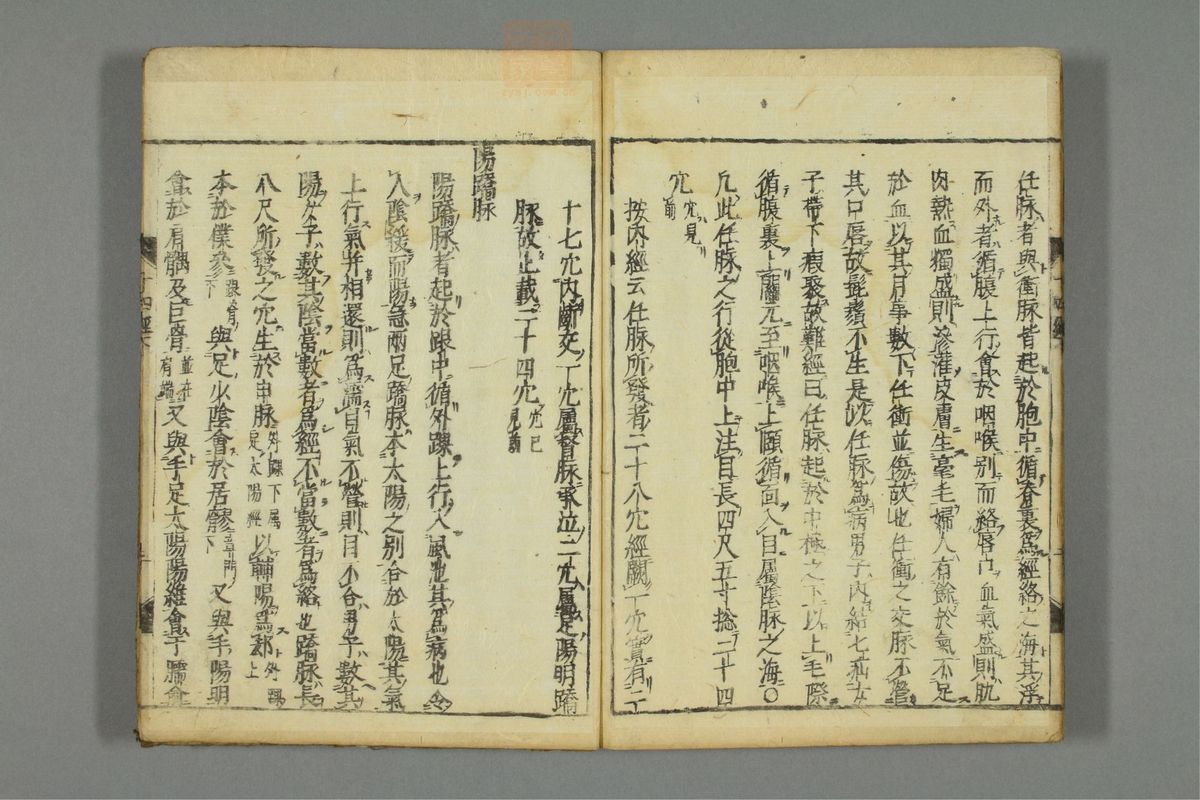 任脉者與衝脉皆起於胞中循脊裏爲經絡之海其浮
而外者循腹上行會於咽喉別而絡唇口血氣盛則肌
肉熱血獨盛則滲灌皮膚生毫毛婦人有餘於氣不足
於血以其月事數下任衝並傷故也任衝之交脉不營
其口唇故髭鬚不生是以任脉爲病男子內結七疝女
子帶下瘕聚故難經曰任脉起於中極之下以上毛際
循腹裏上關元至咽喉上頤循面入目屬陰脉之海○
凡此任脉之行從胞中上注目長四尺五寸捴二十四
穴穴見前
按內經云任脉所發者二十八穴經闕一穴實有二十
十七穴內斷交一穴屬督脉承泣二穴屬足陽明蹻
脉故止載二十四穴穴已見前
陽蹻脉
陽蹻脉者起於跟中循外踝上行入風池其爲病也令
人陰緩而陽急兩足蹻脉本太陽之別合於太陽其氣
上行氣并相還則爲濡目氣不營則目不合男子數其
陽女子數其陰當數者爲經不當數者爲絡也蹻脉長
八尺所發之穴生於申脉外踝下属足太陽經以輔陽爲郄外踝上
本於僕參跟骨下與足少陰會於居髎章門下又與手陽明
會於肩髃及巨骨並在肩端又與手足太陽陽維會于臑俞